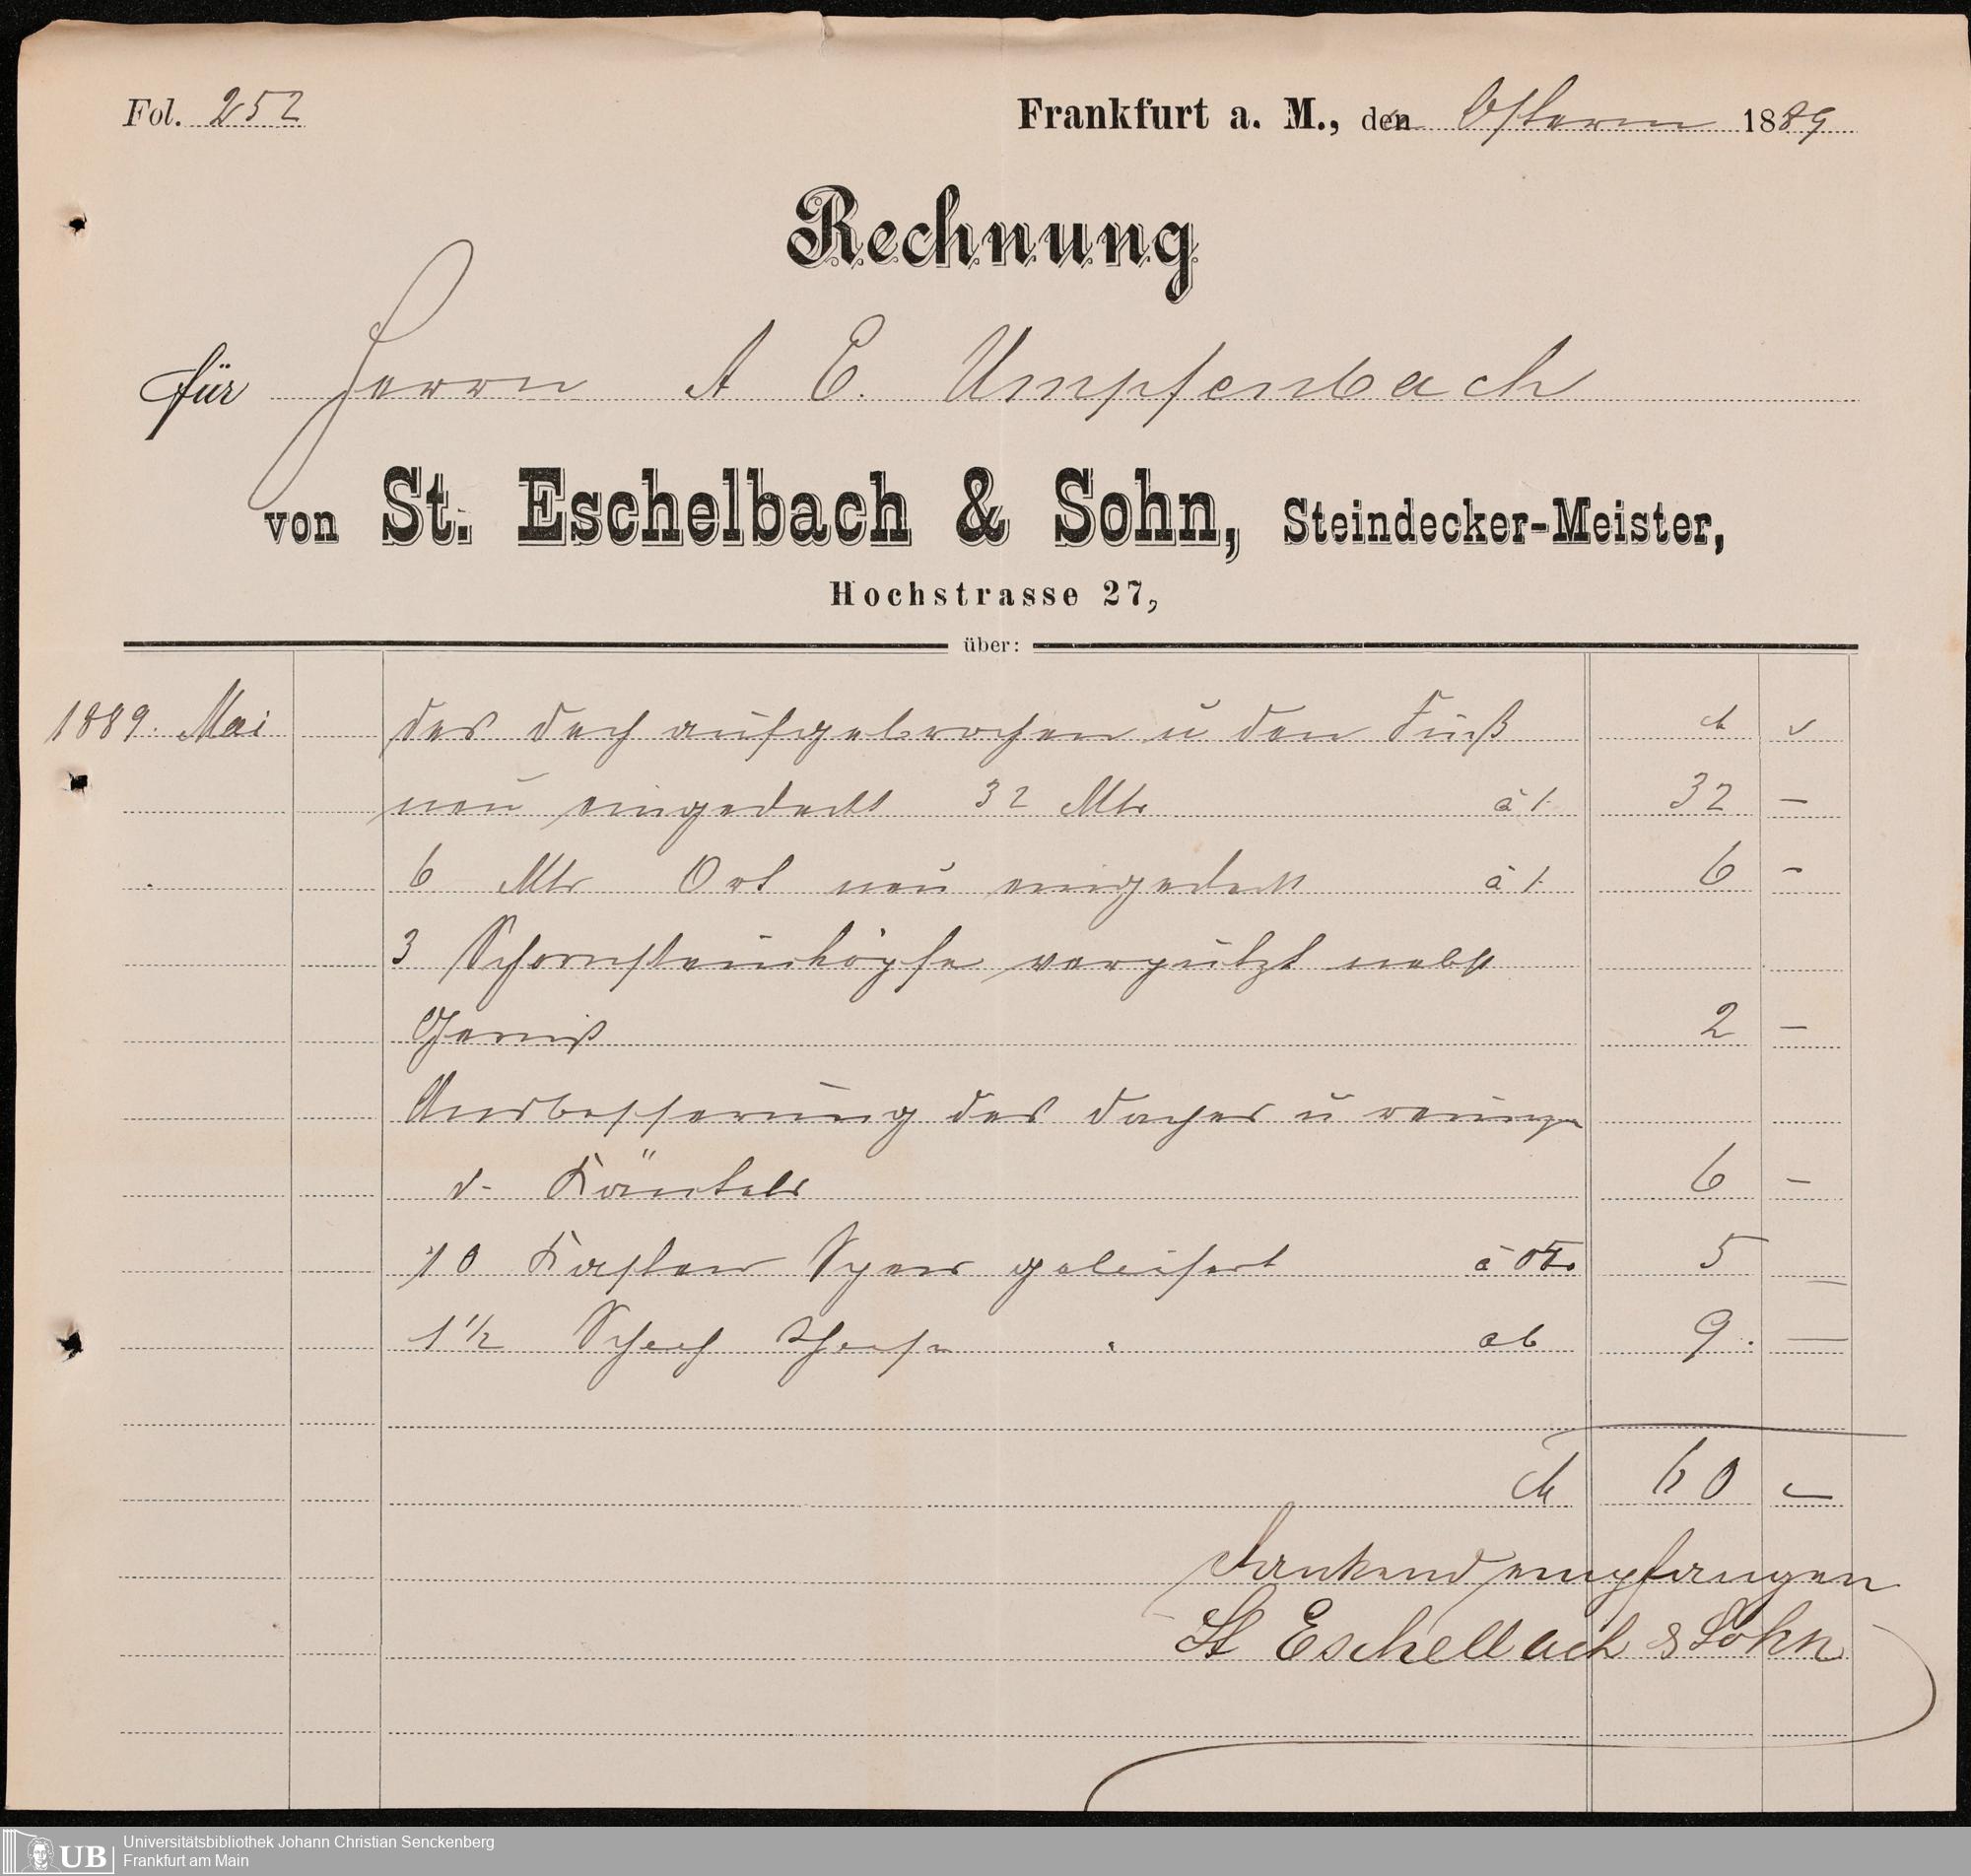 Fol. 252
Frankfurt a. M., den Ostern 1889
Rechnung
für Herrn A E. Umpfenbach
von St. Eschelbach & Sohn, Steindecker-Meister,
Hochstrasse 27,
über:
1889. Mai das Dach aufgebrochen u den Fuß M
neu eingedeckt 32 Mtr à 1. 32 —
6 Mtr Ort neu eingedeckt à 1. 6 —
3 Schornsteinköpfe verputzt nebst
2 —
Ausbesserung des Daches u reinigen
d. Käntels 6 —
10 Kasten Speis geliefert à 5
1½ ab 9. —
M 60 —
Dankend empfangen
St Eschelbach & Sohn
UB
Universitätsbibliothek Johann Christian Senckenberg
Frankfurt am Main